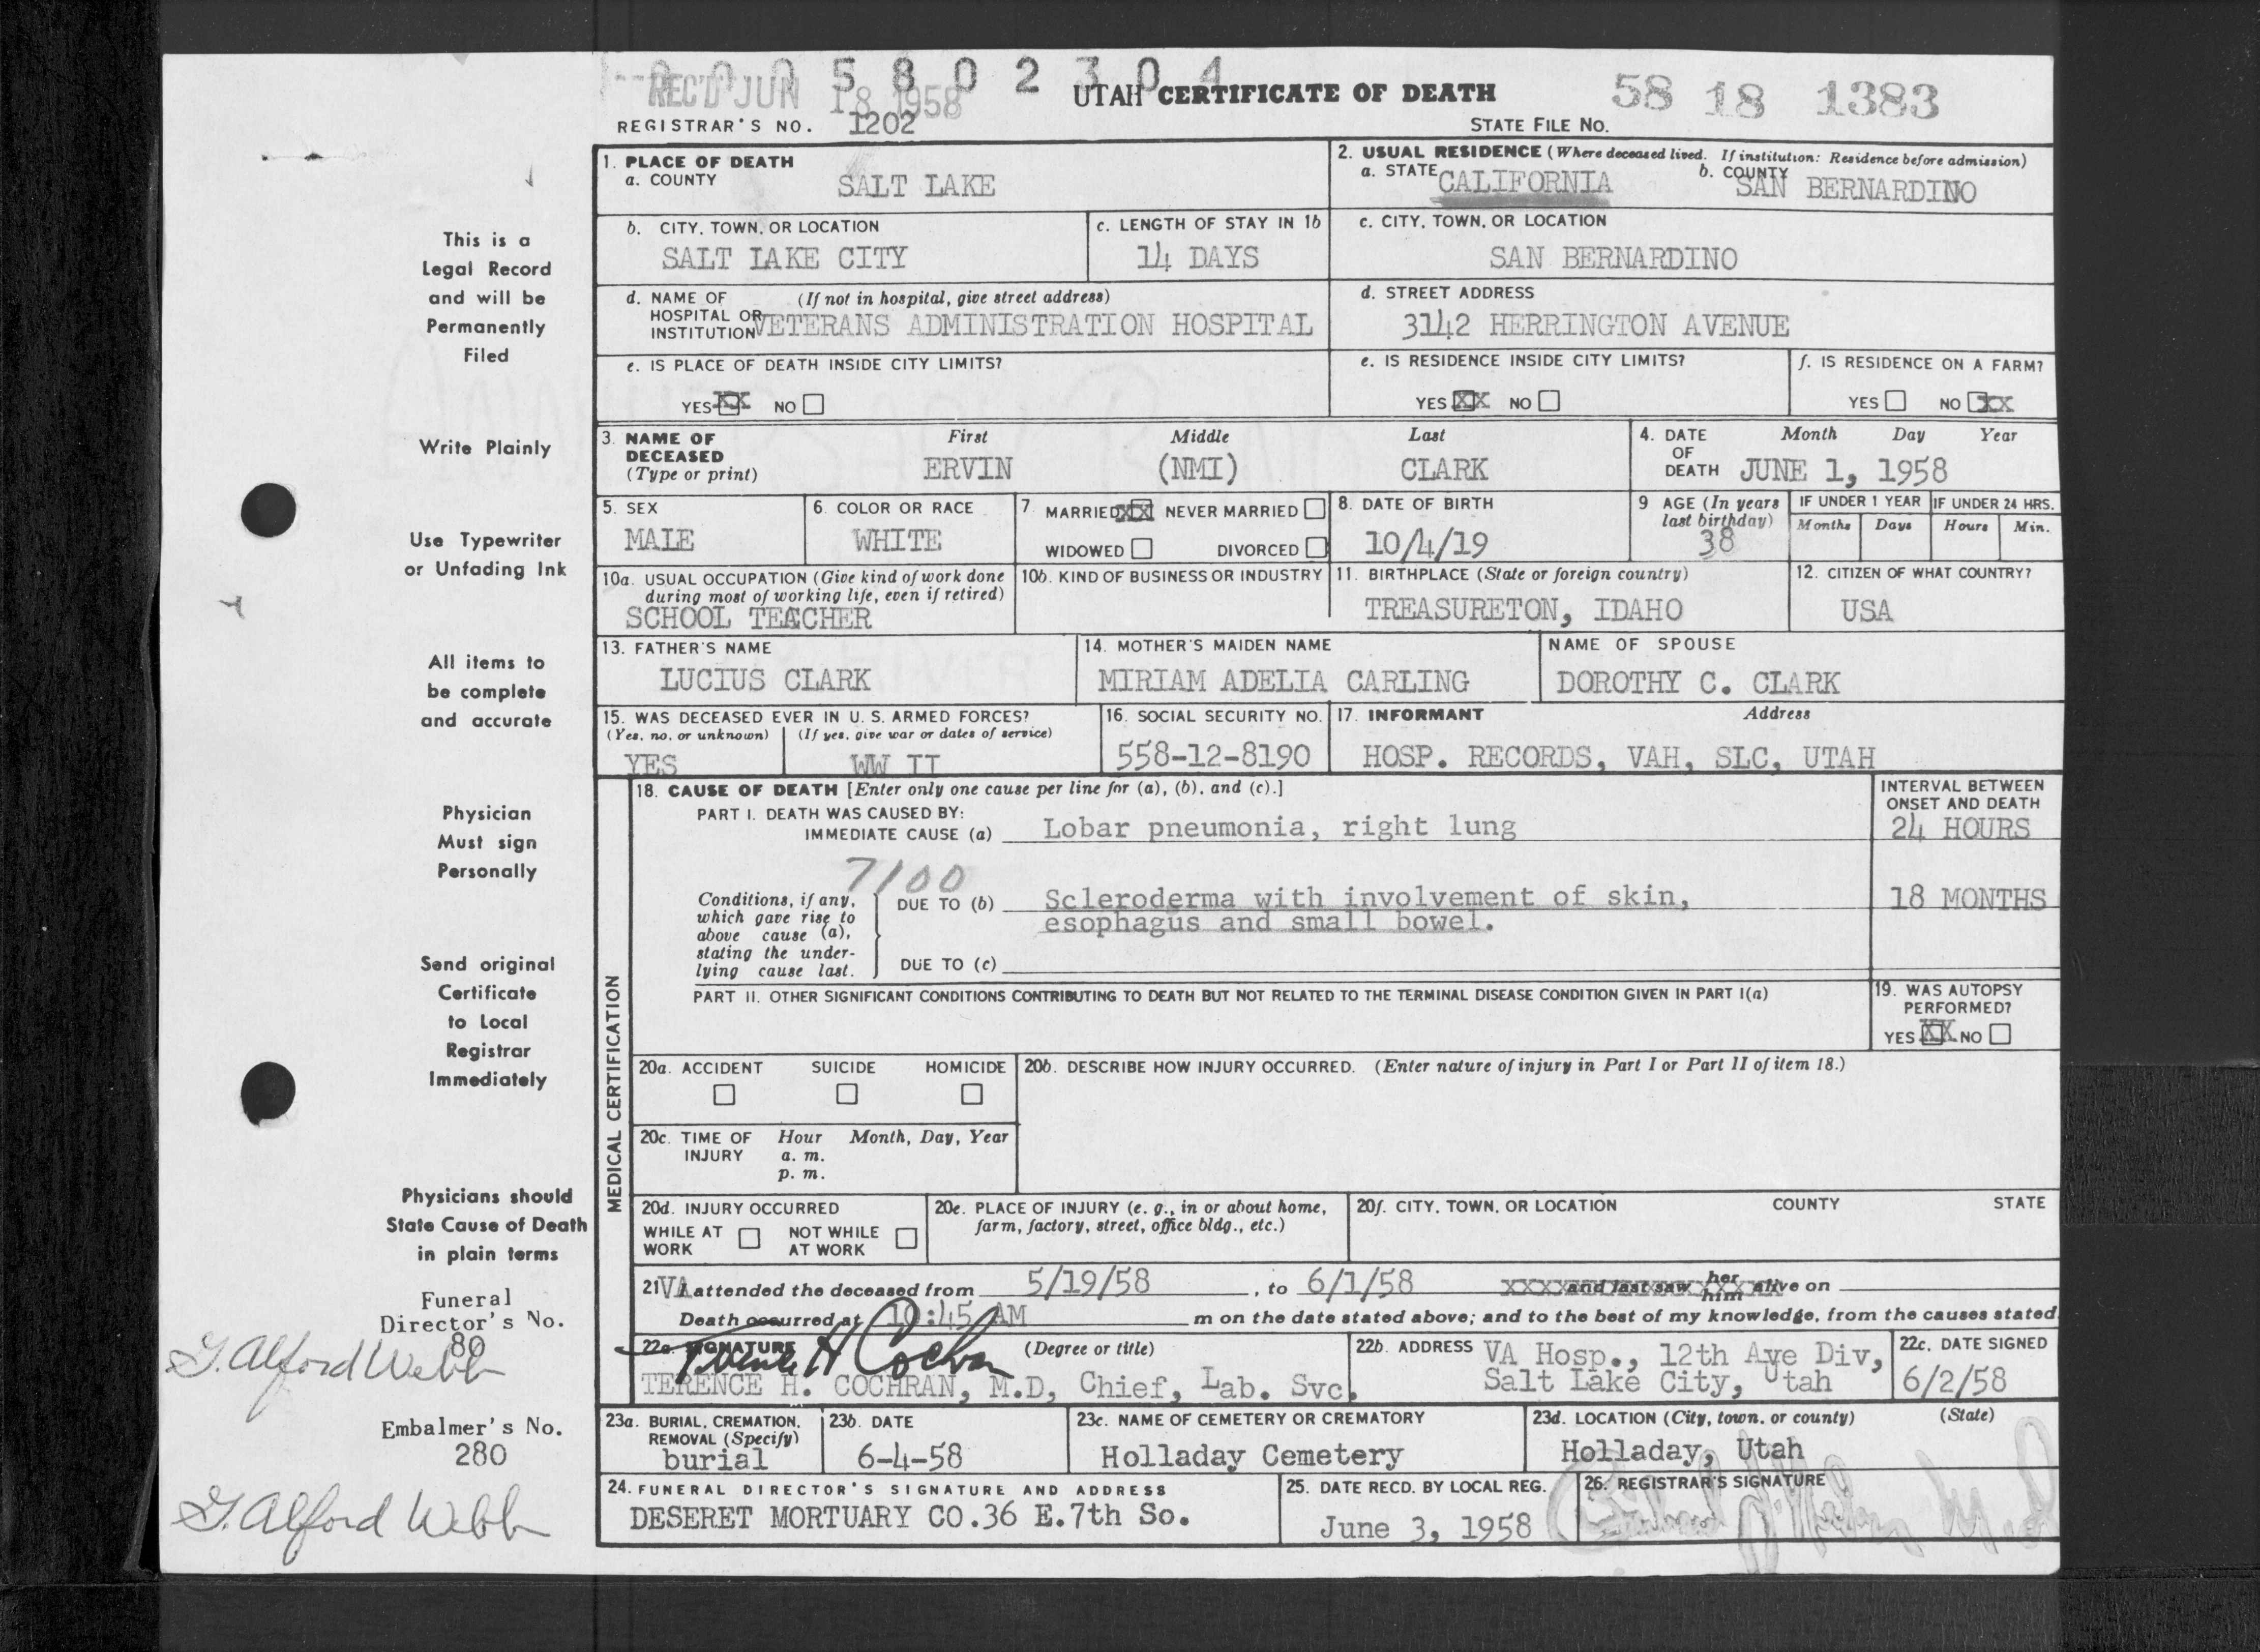 0 0 0 5 8 0 2 3 0 4
REC'D JUN 18 1958
UTAH CERTIFICATE OF DEATH
58 18 1383
REGISTRAR'S NO. 1202
STATE FILE NO.
1. PLACE OF DEATH
a. COUNTY SALT LAKE
2. USUAL RESIDENCE (Where deceased lived. If institution: Residence before admission)
a. STATE CALIFORNIA b. COUNTY SAN BERNARDINO
b. CITY, TOWN, OR LOCATION
SALT LAKE CITY
c. LENGTH OF STAY IN 1b
14 DAYS
c. CITY, TOWN, OR LOCATION
SAN BERNARDINO
d. NAME OF (If not in hospital, give street address)
HOSPITAL OR
INSTITUTION VETERANS ADMINISTRATION HOSPITAL
d. STREET ADDRESS
3142 HERRINGTON AVENUE
e. IS PLACE OF DEATH INSIDE CITY LIMITS?
YES XX NO
e. IS RESIDENCE INSIDE CITY LIMITS?
YES XX NO
f. IS RESIDENCE ON A FARM?
YES NO XX
3. NAME OF DECEASED (Type or print)
First Middle Last
ERVIN (NMI) CLARK
4. DATE OF DEATH Month Day Year
JUNE 1, 1958
5. SEX
MALE
6. COLOR OR RACE
WHITE
7. MARRIED XX NEVER MARRIED
WIDOWED DIVORCED
8. DATE OF BIRTH
10/4/19
9 AGE (In years last birthday)
38
IF UNDER 1 YEAR IF UNDER 24 HRS.
Months Days Hours Min.
10a. USUAL OCCUPATION (Give kind of work done
during most of working life, even if retired)
SCHOOL TEACHER
10b. KIND OF BUSINESS OR INDUSTRY
11. BIRTHPLACE (State or foreign country)
TREASURETON, IDAHO
12. CITIZEN OF WHAT COUNTRY?
USA
13. FATHER'S NAME
LUCIUS CLARK
14. MOTHER'S MAIDEN NAME
MIRIAM ADELIA CARLING
NAME OF SPOUSE
DOROTHY C. CLARK
15. WAS DECEASED EVER IN U. S. ARMED FORCES?
(Yes, no, or unknown) (If yes, give war or dates of service)
YES WW II
16. SOCIAL SECURITY NO.
558-12-8190
17. INFORMANT Address
HOSP. RECORDS, VAH, SLC, UTAH
MEDICAL CERTIFICATION
18. CAUSE OF DEATH [Enter only one cause per line for (a), (b), and (c).]
INTERVAL BETWEEN
ONSET AND DEATH
PART I. DEATH WAS CAUSED BY:
IMMEDIATE CAUSE (a) Lobar pneumonia, right lung 24 HOURS
7100
Conditions, if any,
which gave rise to
above cause (a),
stating the under-
lying cause last.
DUE TO (b) Scleroderma with involvement of skin, 18 MONTHS
esophagus and small bowel.
DUE TO (c)
PART II. OTHER SIGNIFICANT CONDITIONS CONTRIBUTING TO DEATH BUT NOT RELATED TO THE TERMINAL DISEASE CONDITION GIVEN IN PART I(a)
19. WAS AUTOPSY
PERFORMED?
YES XX NO
20a. ACCIDENT SUICIDE HOMICIDE
20b. DESCRIBE HOW INJURY OCCURRED. (Enter nature of injury in Part I or Part II of item 18.)
20c. TIME OF INJURY Hour Month, Day, Year
a. m.
p. m.
20d. INJURY OCCURRED
WHILE AT WORK NOT WHILE AT WORK
20e. PLACE OF INJURY (e. g., in or about home,
farm, factory, street, office bldg., etc.)
20f. CITY, TOWN, OR LOCATION COUNTY STATE
21 VA attended the deceased from 5/19/58, to 6/1/58 XXXX and last saw her him alive on
Death occurred at 10:45 AM m on the date stated above; and to the best of my knowledge, from the causes stated
22a. SIGNATURE (Degree or title)
Terence H Cochran
TERENCE H. COCHRAN, M.D, Chief, Lab. Svc.
22b. ADDRESS VA Hosp., 12th Ave Div,
Salt Lake City, Utah
22c. DATE SIGNED
6/2/58
23a. BURIAL, CREMATION,
REMOVAL (Specify)
burial
23b. DATE
6-4-58
23c. NAME OF CEMETERY OR CREMATORY
Holladay Cemetery
23d. LOCATION (City, town, or county) (State)
Holladay, Utah
24. FUNERAL DIRECTOR'S SIGNATURE AND ADDRESS
DESERET MORTUARY CO. 36 E. 7th So.
25. DATE RECD. BY LOCAL REG.
June 3, 1958
26. REGISTRAR'S SIGNATURE
This is a
Legal Record
and will be
Permanently
Filed
Write Plainly
Use Typewriter
or Unfading Ink
All items to
be complete
and accurate
Physician
Must sign
Personally
Send original
Certificate
to Local
Registrar
Immediately
Physicians should
State Cause of Death
in plain terms
Funeral
Director's No.
80
G. Alford Webb
Embalmer's No.
280
G. Alford Webb